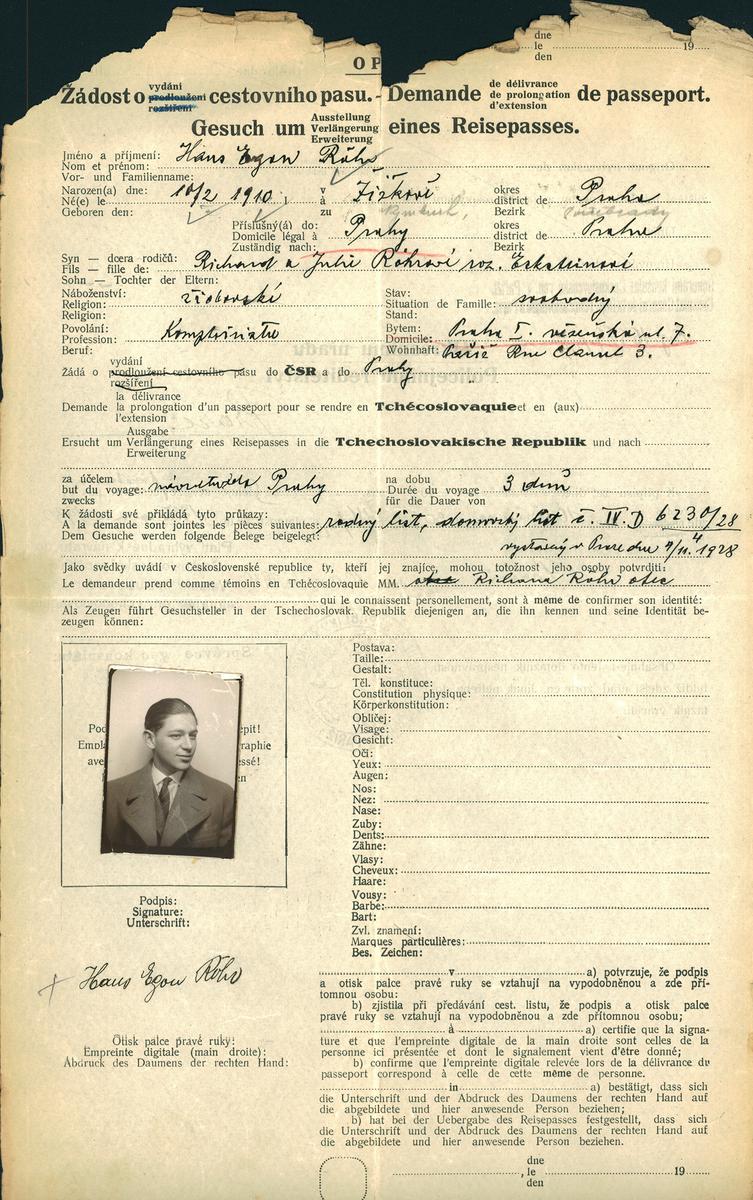 dne
le 19
den
O P
Žádost o vydání prodloužení rozšíření cestovního pasu. - Demande de délivrance de prolongation d'extension de passeport.
Gesuch um Ausstellung Verlängerung Erweiterung eines Reisepasses.
Jméno a příjmení: Hans Egon Röhr
Nom et prénom:
Vor- und Familienname:
Narozen(a) dne: 10/2 1910 v Žižkově okres Praha
Né(e) le à district de
Geboren den: zu Bezirk
Příslušný(á) do: Prahy okres Praha
Domicile légal à district de
Zuständig nach: Bezirk
Syn — dcera rodičů: Richard a Julie Röhrové roz. Ecksteinové
Fils — fille de:
Sohn — Tochter der Eltern:
Náboženství: židovské Stav: svobodný
Religion: Situation de Famille:
Religion: Stand:
Povolání: Bytem: Praha I. vězeňská ul. 7.
Profession: Domicile:
Beruf: Wohnhaft: Paříž Rue Clauel 3.
Žádá o vydání prodloužení cestovního rozšíření pasu do ČSR a do Prahy
la délivrance
Demande la prolongation d'un passeport pour se rendre en Tchécoslovaquie et en (aux)
l'extension
Ausgabe
Ersucht um Verlängerung eines Reisepasses in die Tschechoslovakische Republik und nach
Erweiterung
za účelem Prahy na dobu 3 dnů
but du voyage: Durée du voyage
zwecks für die Dauer von
K žádosti své přikládá tyto průkazy:
A la demande sont jointes les pièces suivantes: rodný list, domovský list č. IV. D 6230/28
Dem Gesuche werden folgende Belege beigelegt:
vystavený v Praze dne 1928
Jako svědky uvádí v Československé republice ty, kteří jej znajíce, mohou totožnost jeho osoby potvrditi:
Le demandeur prend comme témoins en Tchécoslovaquie MM. Richard Röhr otec
qui le connaissent personellement, sont à même de confirmer son identité:
Als Zeugen führt Gesuchsteller in der Tschechoslovak. Republik diejenigen an, die ihn kennen und seine Identität be-
zeugen können:
Postava:
Taille:
Gestalt:
Těl. konstituce:
Constitution physique:
Körperkonstitution:
Obličej:
Visage:
Gesicht:
Oči:
Yeux:
Augen:
Nos:
Nez:
Nase:
Zuby:
Dents:
Zähne:
Vlasy:
Cheveux:
Haare:
Vousy:
Barbe:
Bart:
Zvl. znamení:
Marques particulières:
Bes. Zeichen:
Podpis:
Signature:
Unterschrift:
Hans Egon Röhr
Otisk palce pravé ruky:
Empreinte digitale (main droite):
Abdruck des Daumens der rechten Hand:
v a) potvrzuje, že podpis
a otisk palce pravé ruky se vztahují na vypodobněnou a zde pří-
tomnou osobu:
b) zjistila při předávání cest. listu, že podpis a otisk palce
pravé ruky se vztahují na vypodobněnou a zde přítomnou osobu;
à a) certifie que la signa-
ture et que l'empreinte digitale de la main droite sont celles de la
personne ici présentée et dont le signalement vient d'être donné;
b) confirme que l'empreinte digitale relevée lors de la délivrance du
passeport correspond à celle de cette même de personne.
in a) bestätigt, dass sich
die Unterschrift und der Abdruck des Daumens der rechten Hand auf
die abgebildete und hier anwesende Person beziehen;
b) hat bei der Uebergabe des Reisepasses festgestellt, dass sich
die Unterschrift und der Abdruck des Daumens der rechten Hand auf
die abgebildete und hier anwesende Person beziehen.
dne
, le 19
den